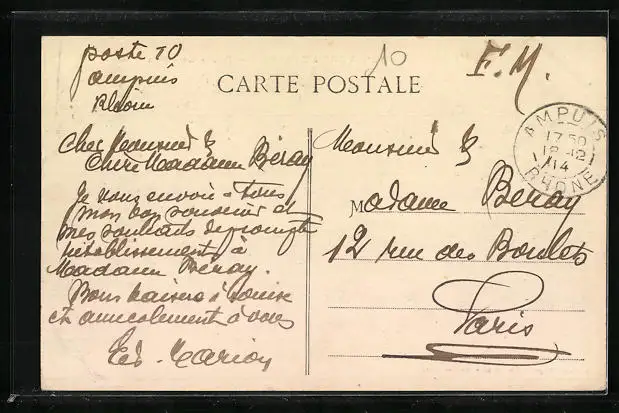 poste 10
ampuis
Rhone
10
F. M.
CARTE POSTALE
AMPUIS
17 50
12-12
14
RHONE
Cher Monsieur &
Chère Madame Béray
Je vous envoie à tous
mon bon souvenir et
mes souhaits de prompt
rétablissement à
Madame Béray.
Bons baisers à Louise
et amicalement à vous
Monsieur &
Madame Béray
12 rue des Boulets
Paris